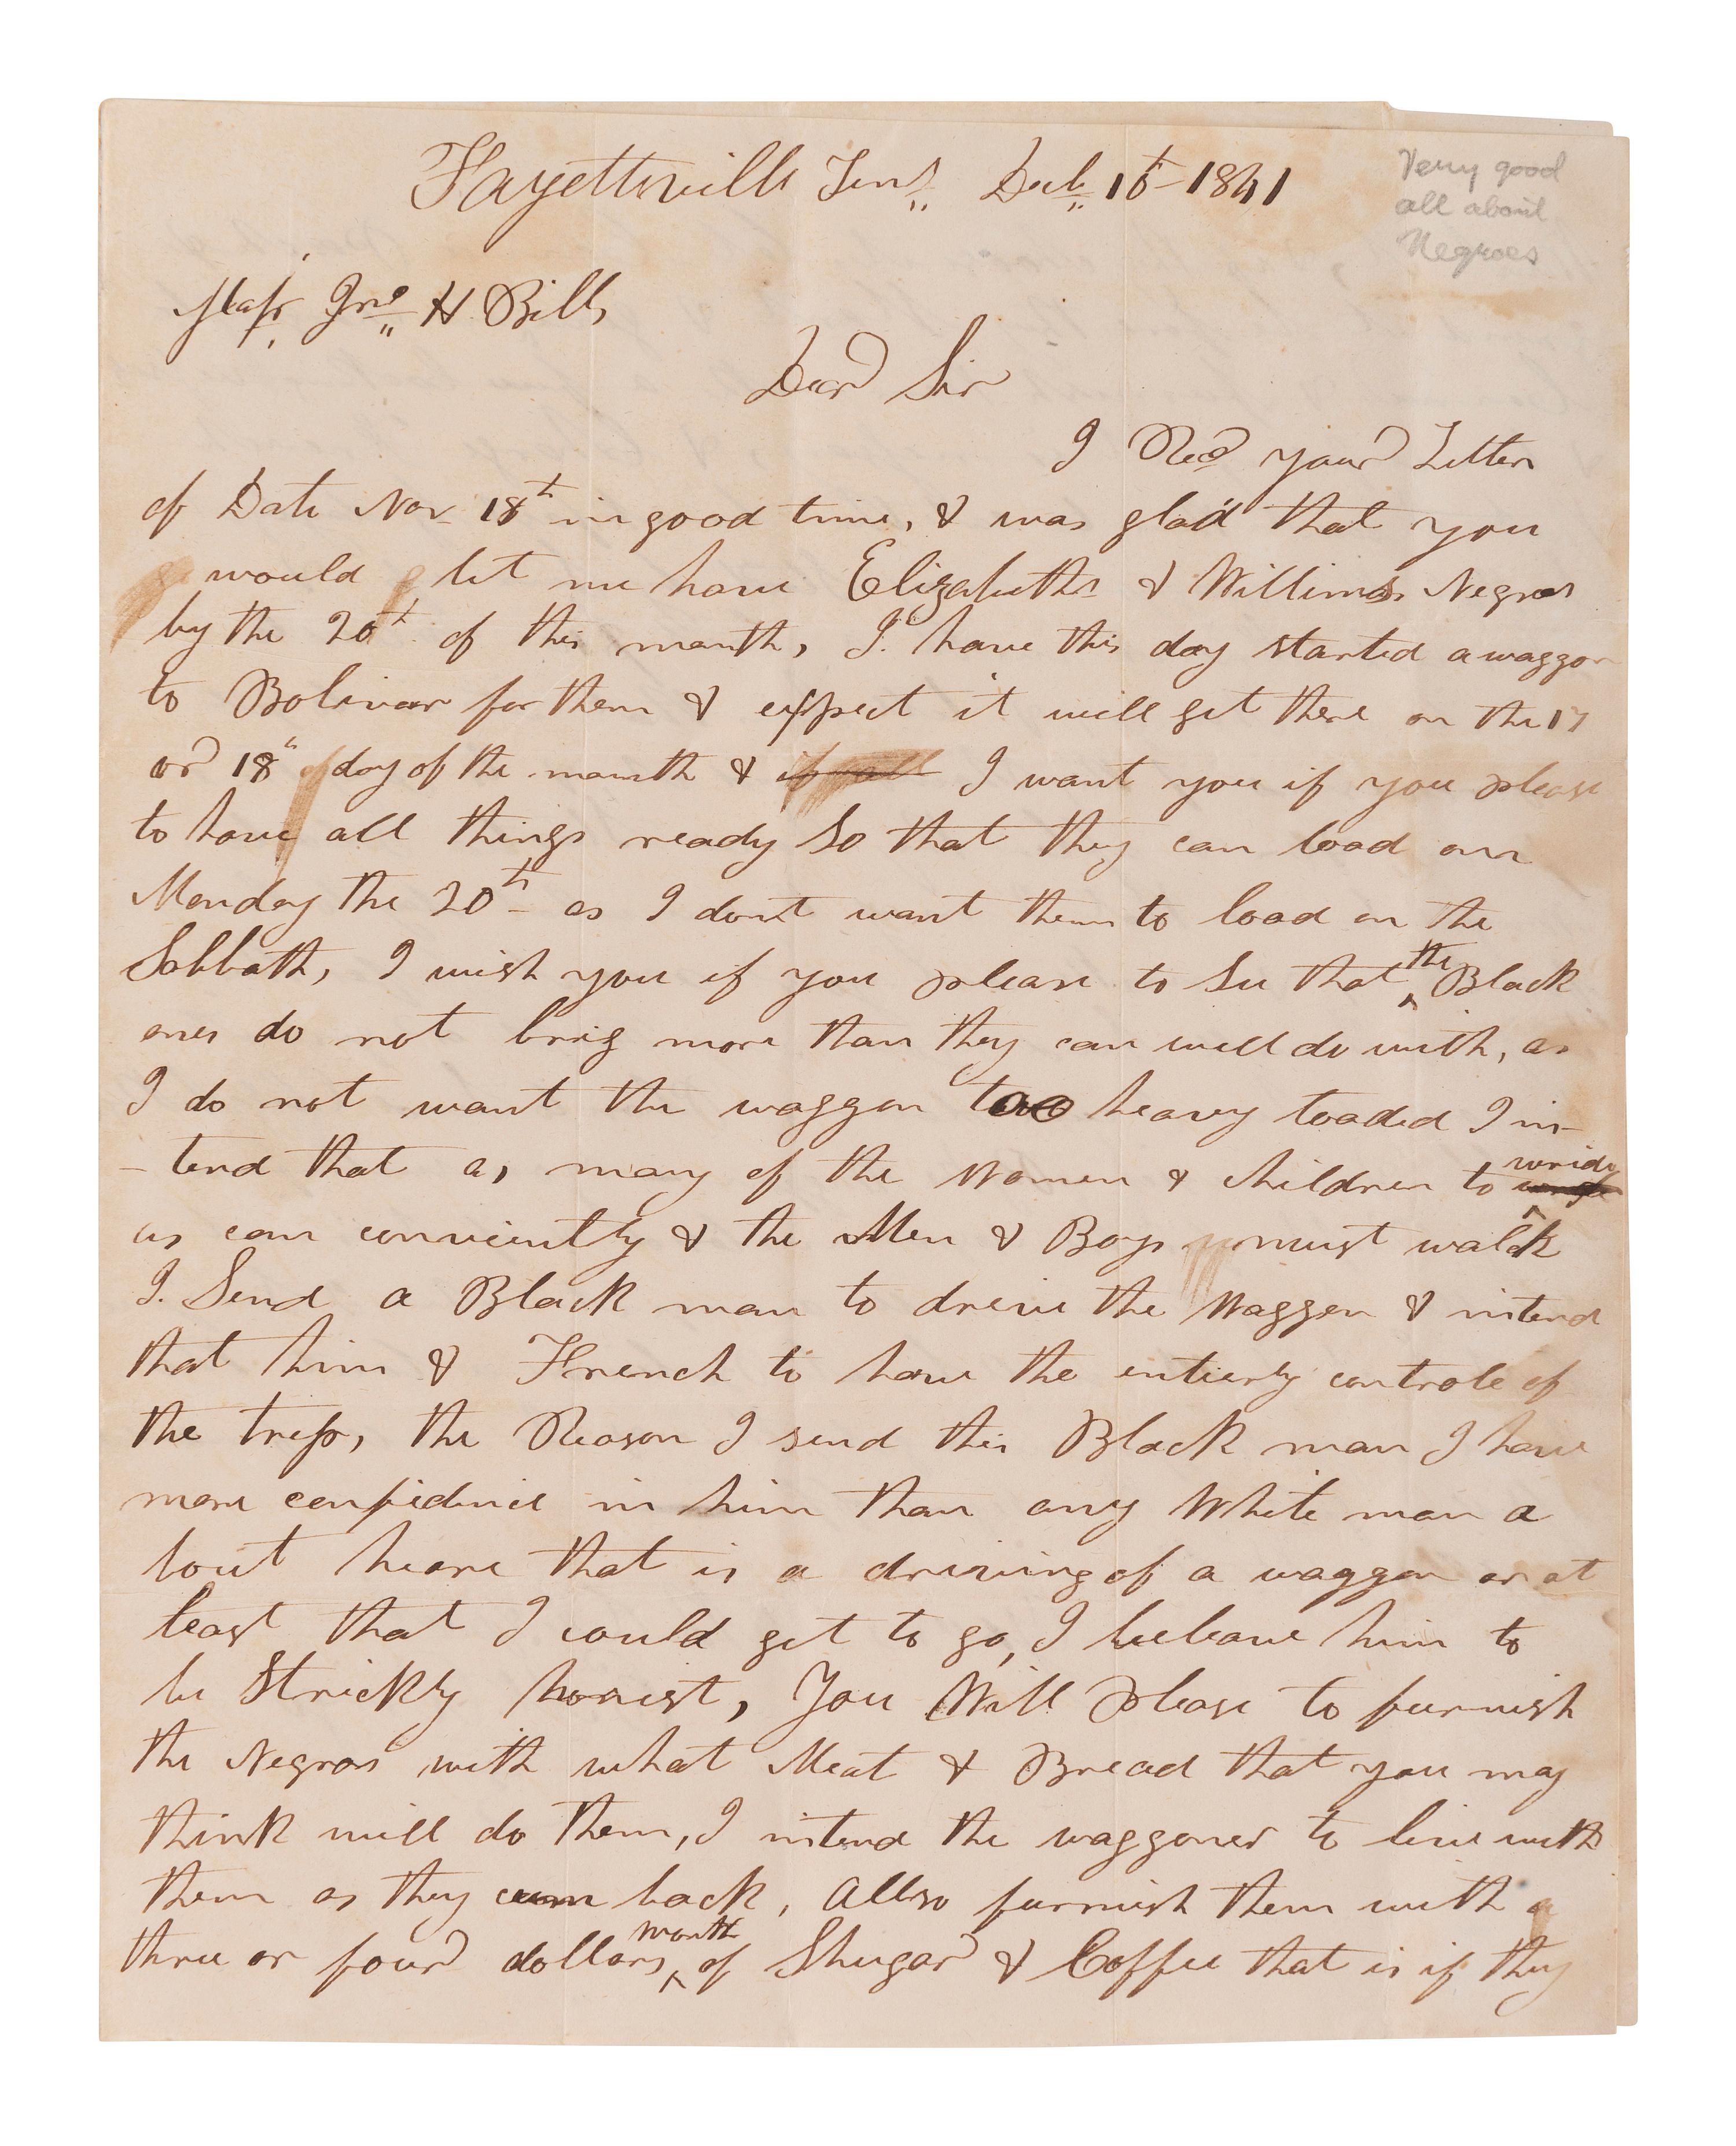 Fayettsvill Ten, Dec 16th 1841
Very good
all about
Negroes
Majr Jno H Bills
Dear Sir
I Recd your Letter
of Date Nov 18th in good time, & was glad that you
would let me have Elizabeths & Willims Negros
by the 20th of this month, I have this day started a waggon
to Bolivar for them & expect it will get there on the 17
or 18th day of the month & I want you if you please
to have all things ready So that they can load on
Monday the 20th as I dont want them to load on the
Sabbath, I wish you if you please to See that the Black
ones do not brig more than they can well do with, as
I do not want the waggon too heavy loaded I in-
-tend that as many of the Women & children to wride
as can conviently & the Men & Boys must walk
I. Send a Black man to drive the Waggon & intend
that him & French to have the entierly controle of
the trip, the Reason I send this Black man I have
more confidince in him than any White man a
bout heare that is a driving of a waggon or at
least that I could get to go, I beleave him to
be Strickly honist, You Will please to furnish
the Negros with what Meat & Bread that you may
think will do them, I intend the waggoner to live with
them as they cum back, Allso furnish them with a
three or four dollars worth of Shugar & Coffee that is if they